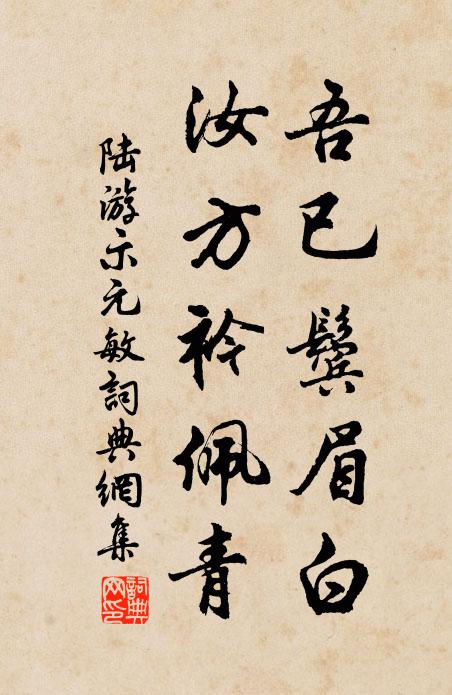 吾已鬓眉白
汝方衿佩青
陆游示元敏词典網集
詞典网印